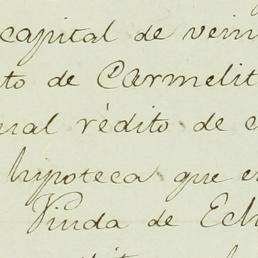 capital de vein
to de Carmelit
ual rédito de c
hipoteca que e
Viuda de Ech